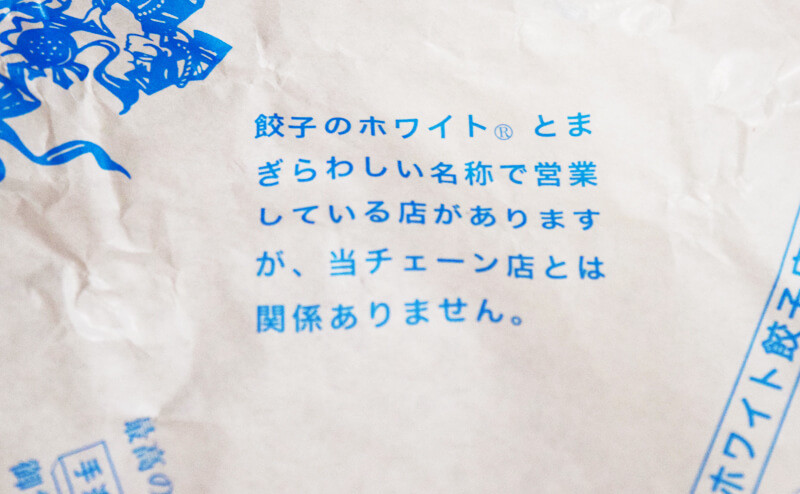 餃子のホワイト® とま
ぎらわしい名称で営業
している店があります
が、当チェーン店とは
関係ありません。
ホワイト餃子
手